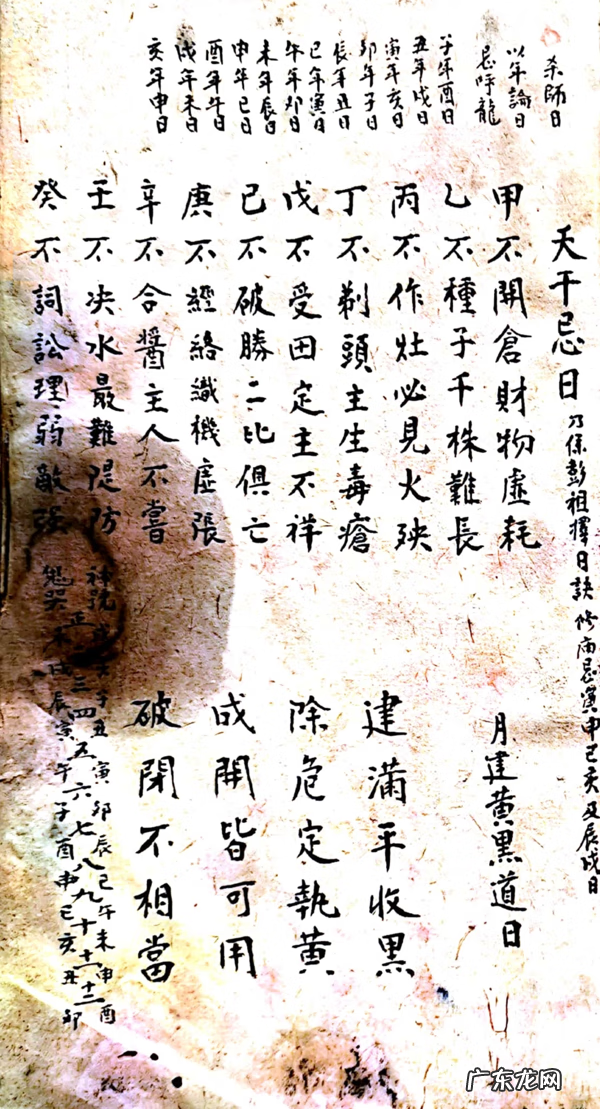 杀師日
以年論日
忌呼龍
子年酉日
丑年戌日
寅年亥日
卯年子日
辰年丑日
巳年寅日
午年卯日
未年辰日
申年巳日
酉年午日
戌年未日
亥年申日
天干忌日 乃係彭祖擇日訣 修庙忌寅申巳亥及辰戌日
甲不開倉財物虛耗
乙不種子千株難長
丙不作灶必見火殃
丁不剃頭主生毒瘡
戊不受田定主不祥
己不破勝二比俱亡
庚不經絡織機虛張
辛不合醬主人不嘗
壬不決水最難隄防
癸不詞訟理弱敵强
月建黄黑道日
建滿平收黑
除危定執黄
成開皆可用
破閉不相當
神號 戌亥子丑寅卯辰巳午未申酉
正二三四五六七八九十十一十二
鬼哭 未戌辰寅午子酉申巳亥丑卯
广东龙网